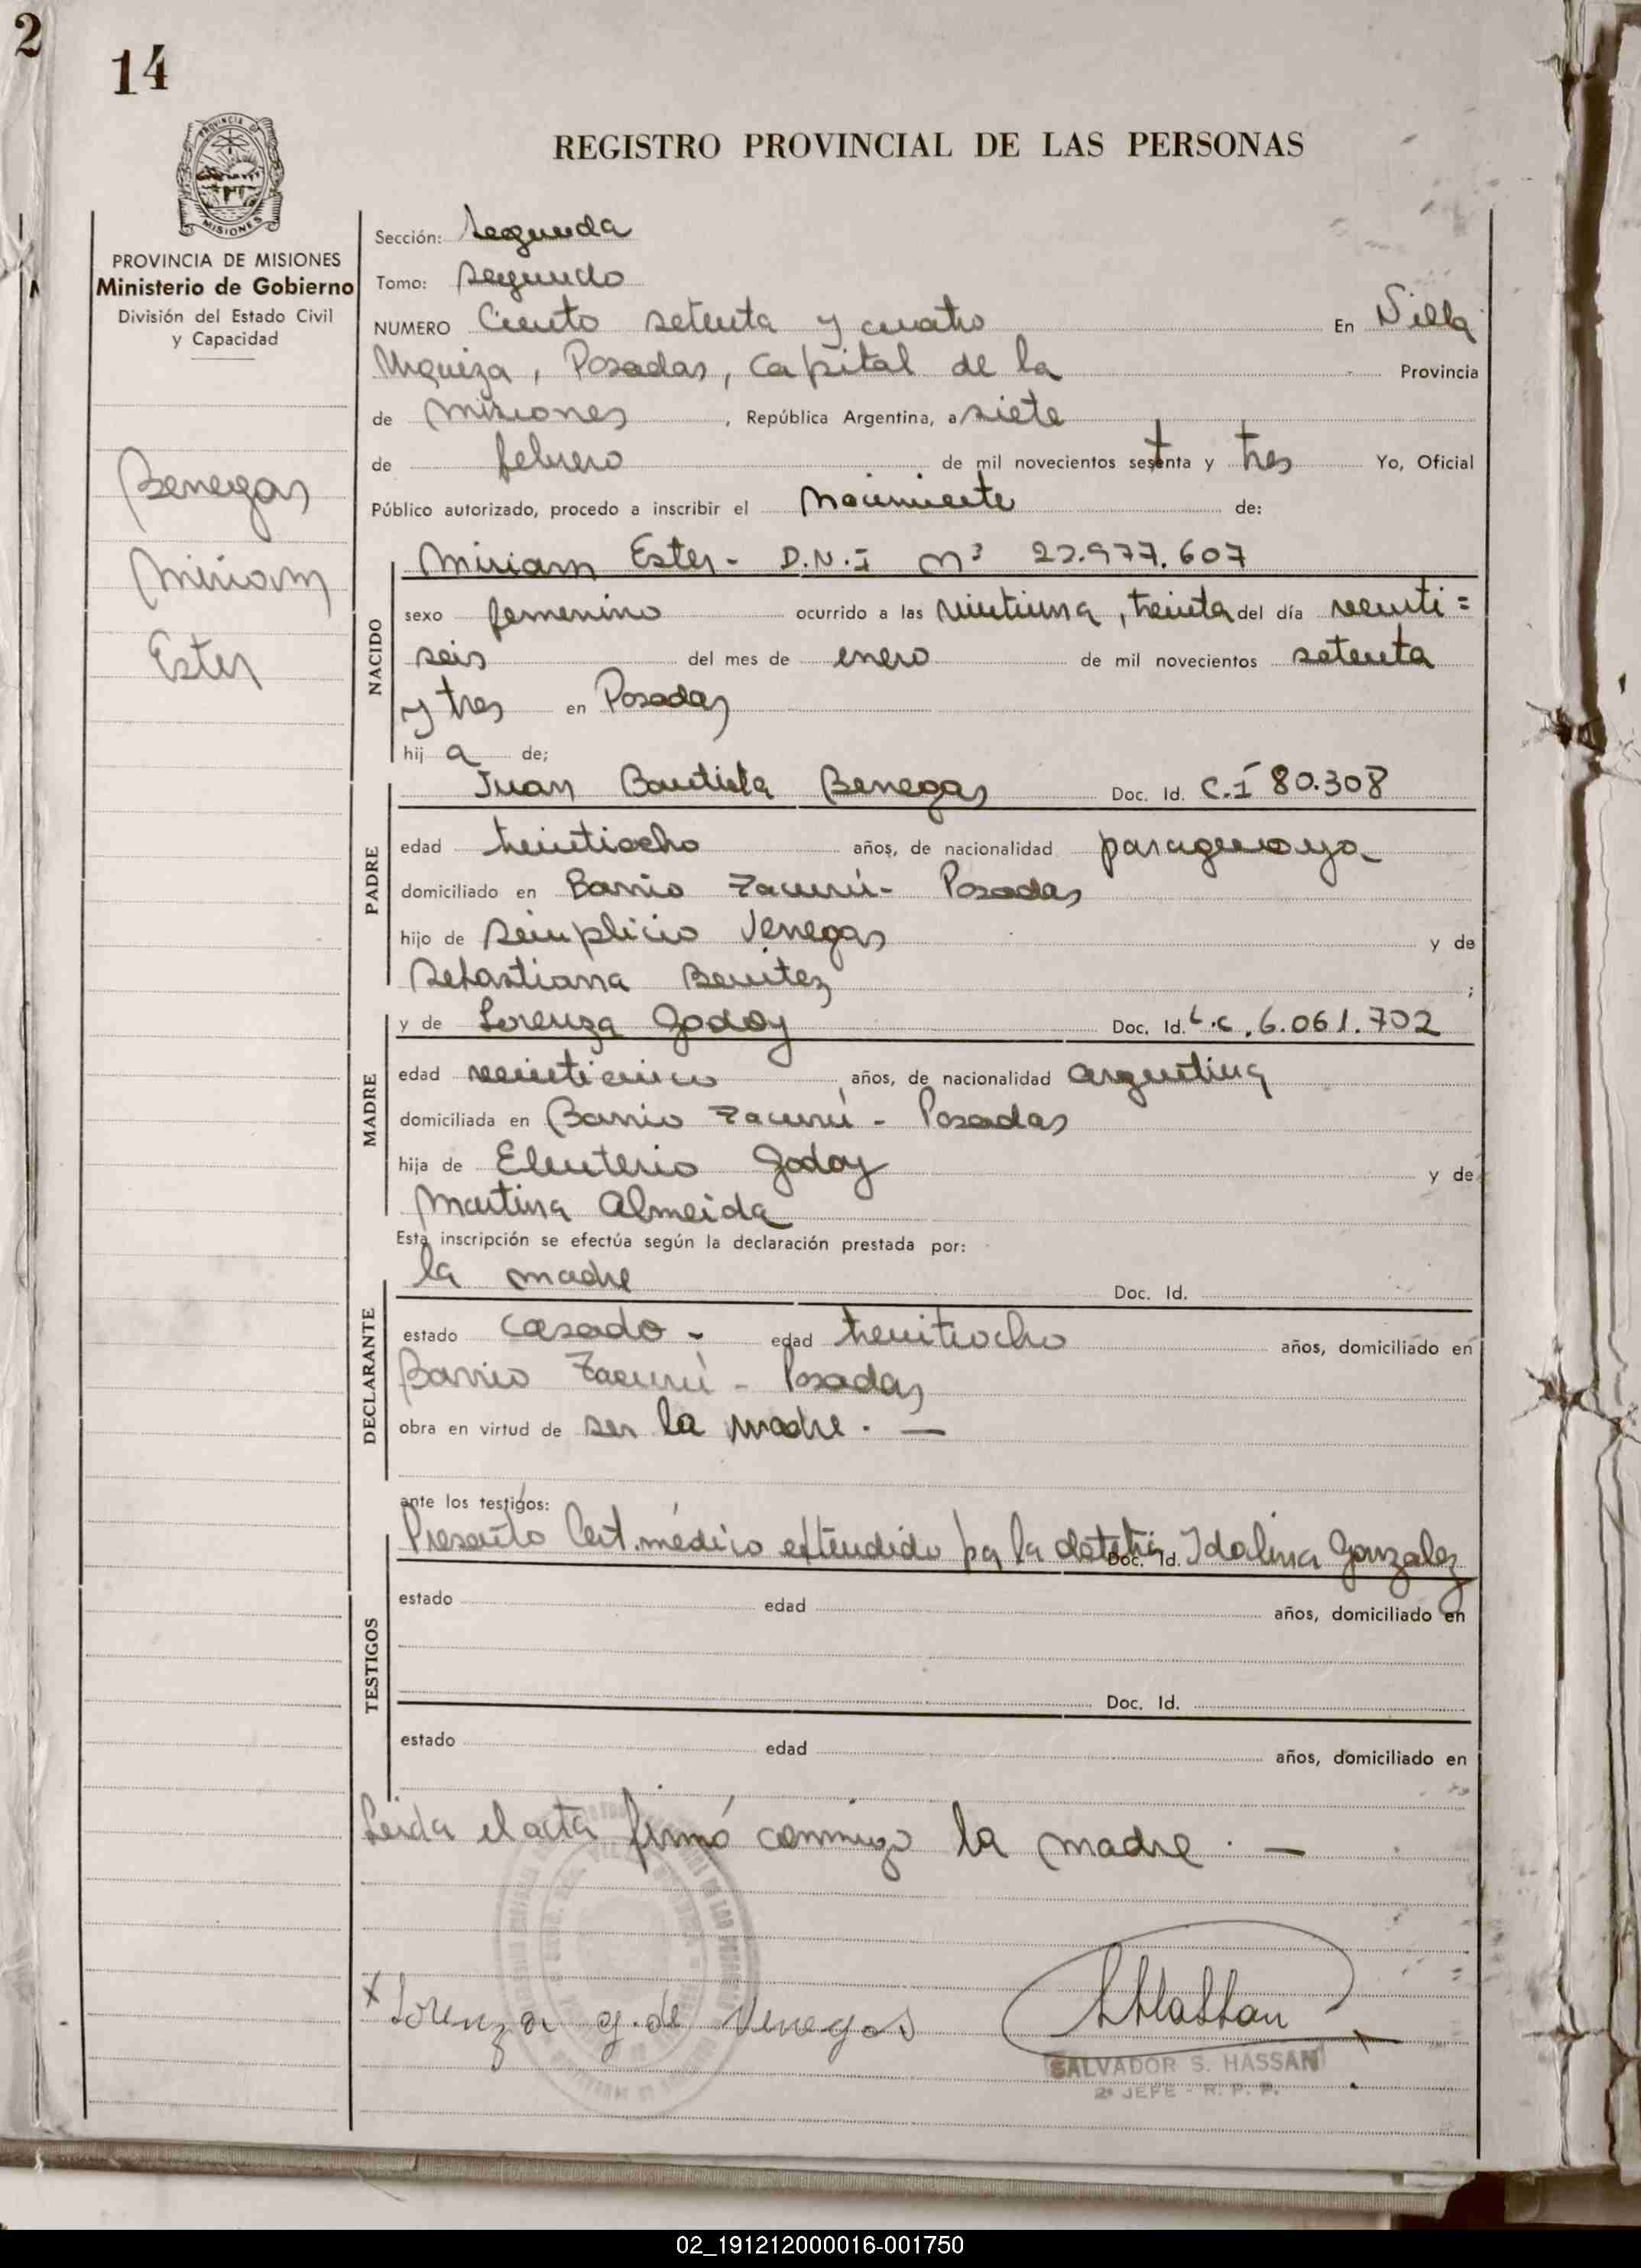 2
14
PROVINCIA DE
MISIONES
REGISTRO PROVINCIAL DE LAS PERSONAS
PROVINCIA DE MISIONES
Ministerio de Gobierno
División del Estado Civil
y Capacidad
Benegas
Miriam
Ester
Sección: Segunda
Tomo: segundo
NUMERO Ciento setenta y cuatro En Villa
Urquiza, Posadas, capital de la Provincia
de misiones, República Argentina, a siete
de febrero de mil novecientos setenta y tres Yo, Oficial
Público autorizado, procedo a inscribir el nacimiento de:
NACIDO
Miriam Ester - D.N.I nº 22.977.607
sexo femenino ocurrido a las veintiuna, treinta del día veinti=
seis del mes de enero de mil novecientos setenta
y tres en Posadas
hij a de;
PADRE
Juan Bautista Benegas Doc. Id. C.I 80.308
edad treintiocho años, de nacionalidad paraguaya
domiciliado en Barrio Posadas
hijo de Simplicio Venegas y de
Sebastiana Benitez ;
MADRE
y de Lorenza Godoy Doc. Id. L.C. 6.061.702
edad veinticinco años, de nacionalidad argentina
domiciliada en Barrio Posadas
hija de Eleuterio Godoy y de
Martina Almeida
Esta inscripción se efectúa según la declaración prestada por:
DECLARANTE
la madre Doc. Id.
estado casado - edad treintiocho años, domiciliado en
Barrio Posadas
obra en virtud de ser la madre. —
ante los testigos:
TESTIGOS
Presento Cert. médico extendido por la Doc. Id. Idalina Gonzalez
estado edad años, domiciliado en
Doc. Id.
estado edad años, domiciliado en
Leida el acta firmó conmigo la madre. —
x Lorenza g. de Venegas
SALVADOR S. HASSAN
2º JEFE - R. P. P.
02_191212000016-001750